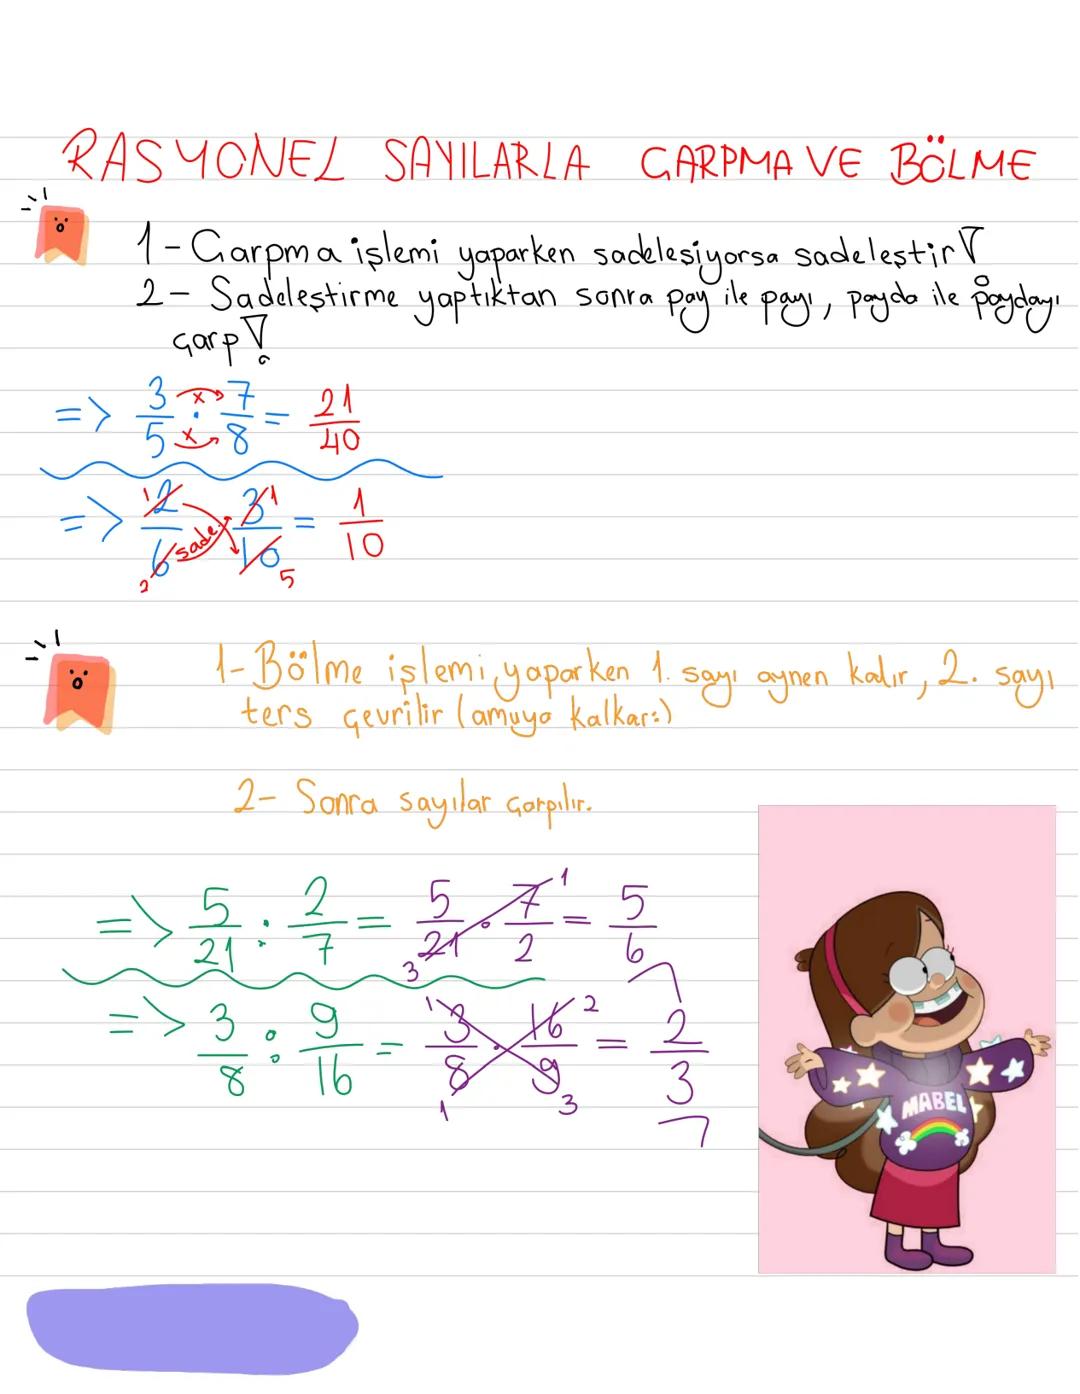 RASYONEL SAYILARLA ÇARPMA VE BÖLME
1- Çarpma işlemi yaparken sadeleşiyorsa sadeleştir!
2- Sadeleştirme yaptıktan sonra pay ile payı, payda ile paydayı
çarp!
=> 3/5 · 7/8 = 21/40
x
x
=> 2/6 · 3/10 = 1/10
1 1
sade.
2 5
1- Bölme işlemi yaparken 1. sayı aynen kalır, 2. sayı
ters çevrilir (amuya kalkar:)
2- Sonra sayılar çarpılır.
=> 5/21 : 2/7 = 5/21 · 7/2 = 5/6
1
3
=> 3/8 : 9/16 = 3/8 · 16/9 = 2/3
1 2
1 3
MABEL